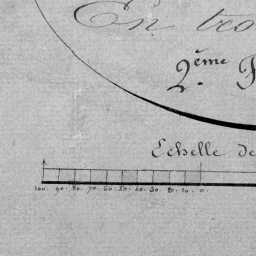 En tro
2.ème
Echelle de
100. 90. 80. 70. 60. 50. 40. 30. 20. 10. 0.